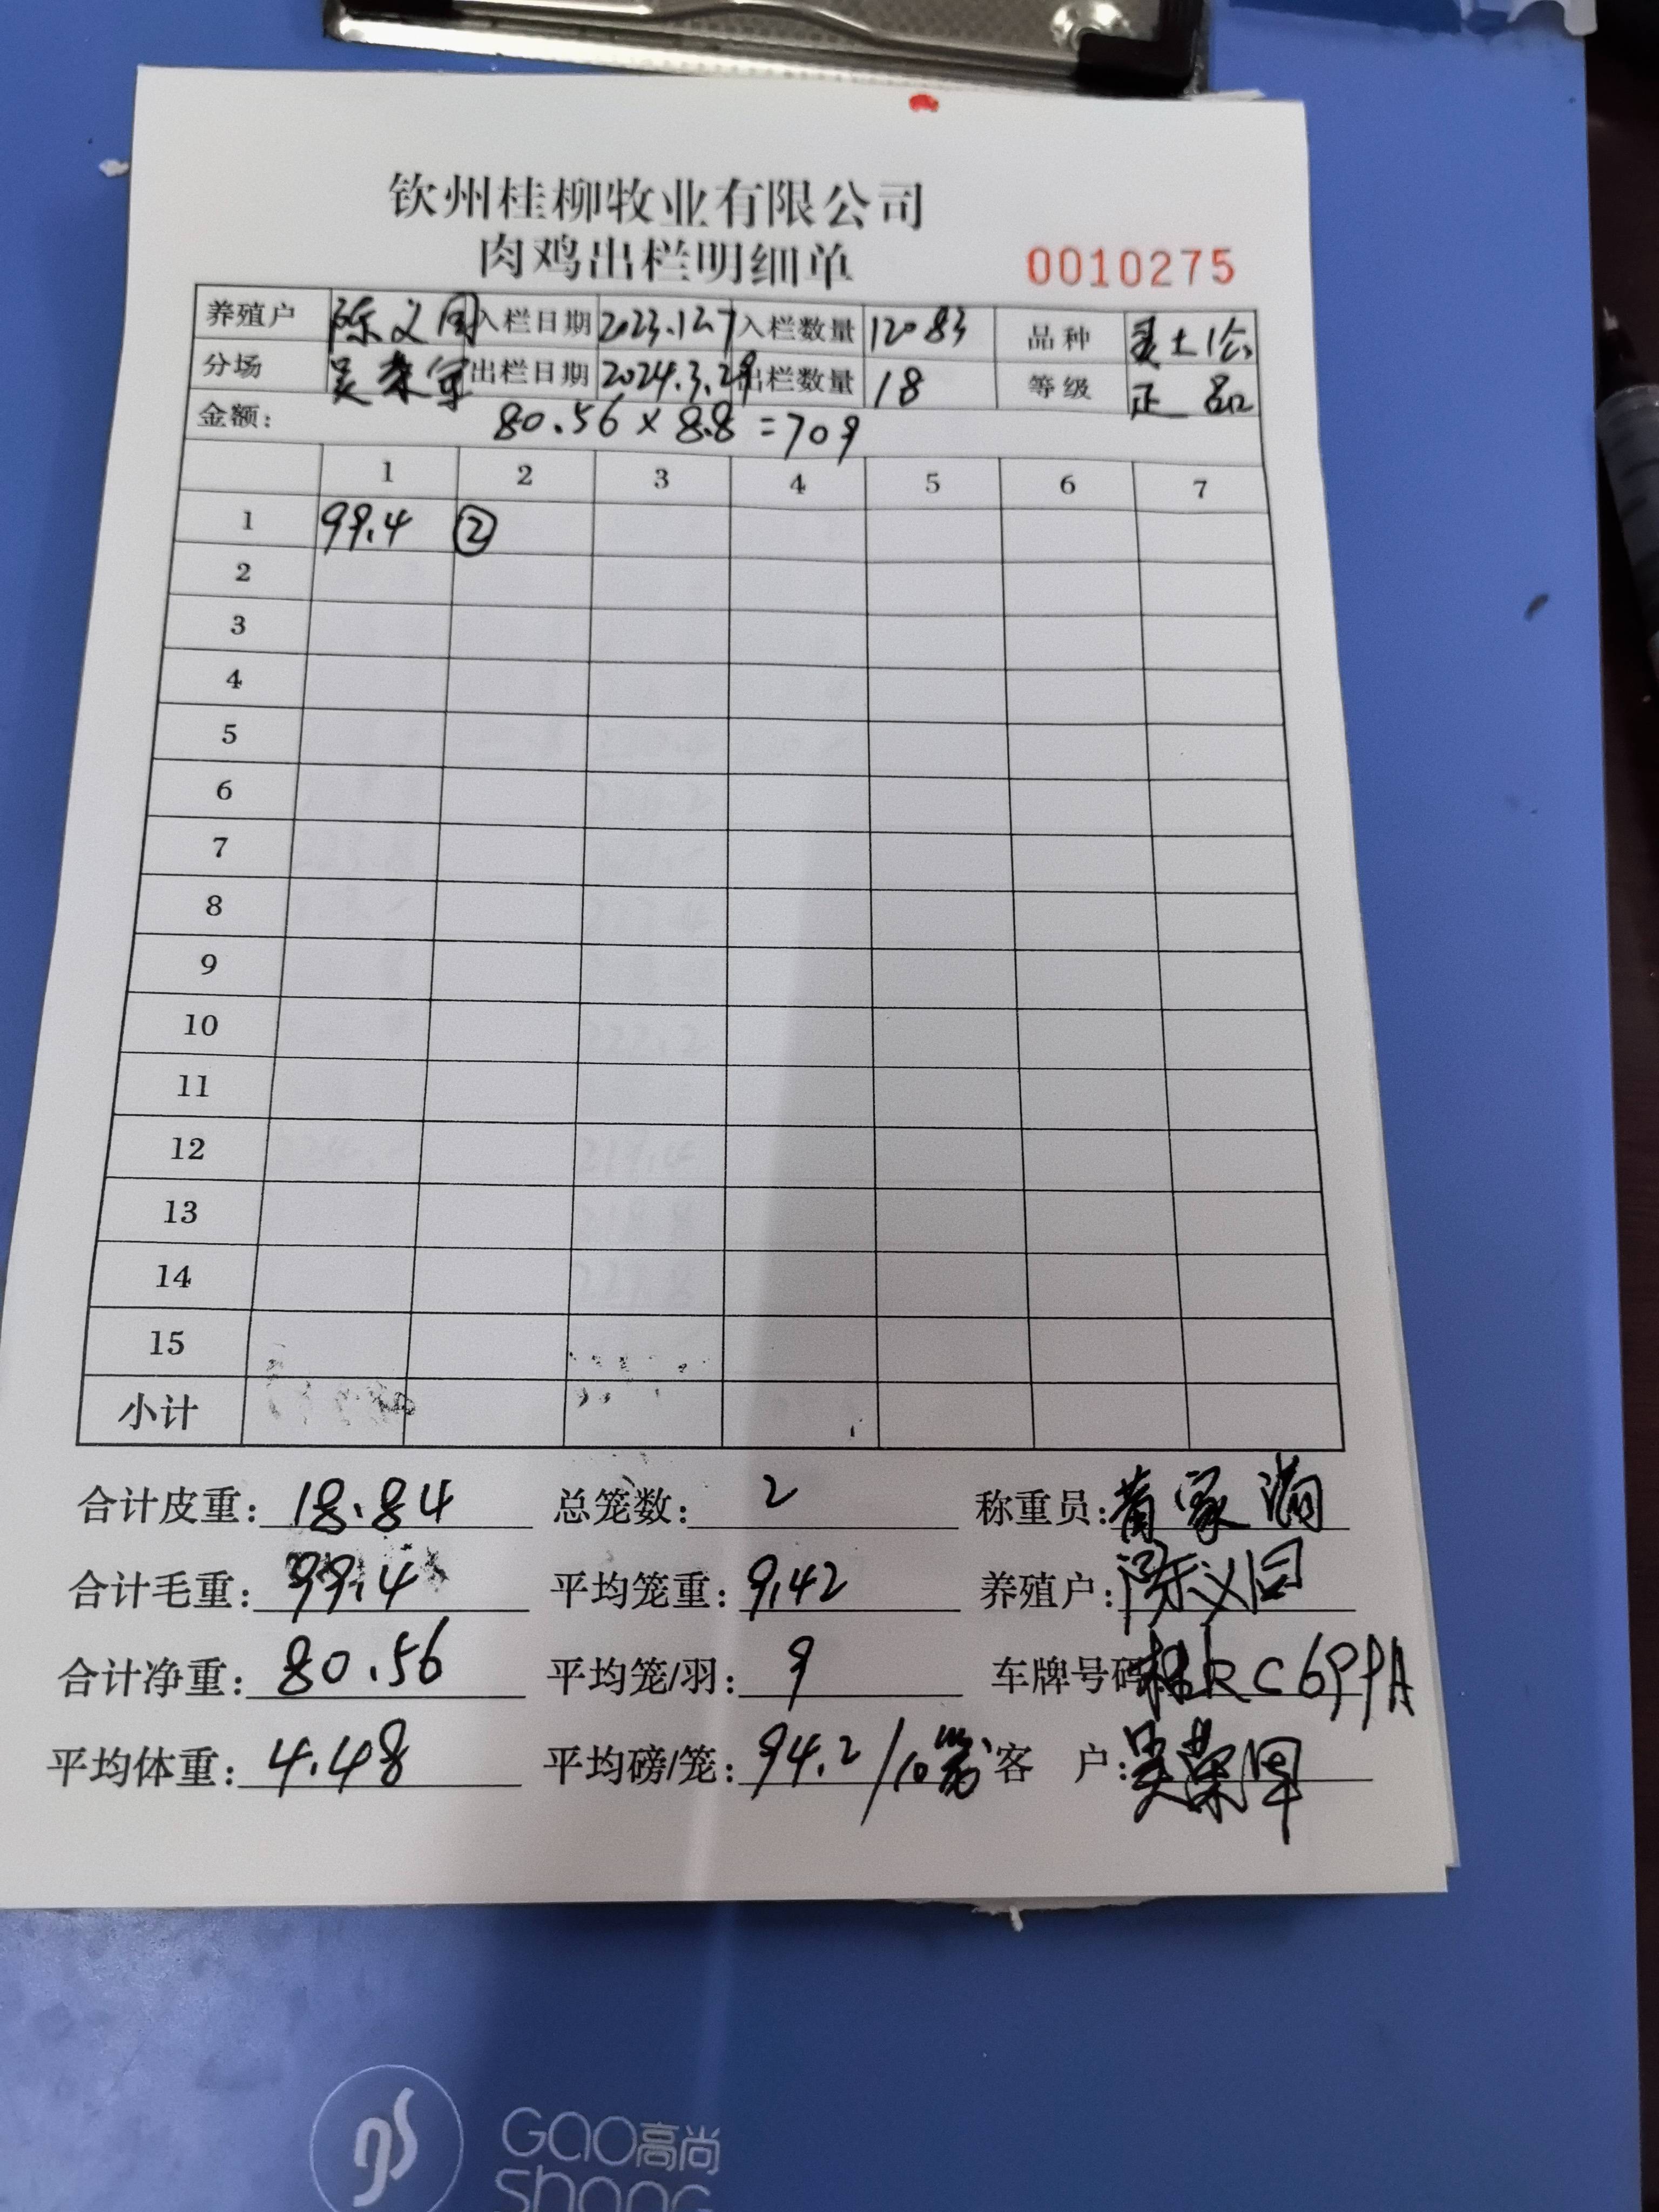 钦州桂柳牧业有限公司
肉鸡出栏明细单 0010275
养殖户 陈义国 入栏日期 2023.12.7 入栏数量 12083 品种 土公
分场 出栏日期 2024.3.29 出栏数量 18 等级 正品
金额: 80.56 × 8.8 = 709
1 2 3 4 5 6 7
1 99.4 ②
2
3
4
5
6
7
8
9
10
11
12
13
14
15
小计
合计皮重: 18.84 总笼数: 2 称重员: 黄家
合计毛重: 99.4 平均笼重: 9.42 养殖户: 陈义国
合计净重: 80.56 平均笼/羽: 9 车牌号码 桂KC6PPA
平均体重: 4.48 平均磅/笼: 94.2/10笼 客 户:
GAO高尚
Shang